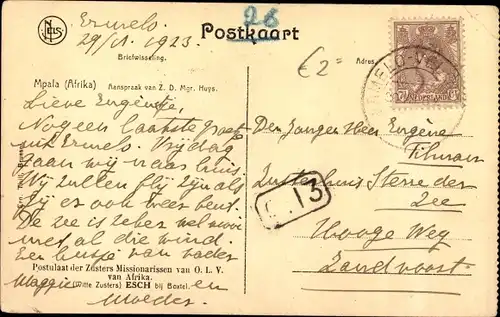 Ermelo.
29/1. 1923.
28
Postkaart
Briefwisseling.
€2=
Adres
ERMELO-VEL
NEDERLAND
Mpala (Afrika) Aanspraak van Z. D. Mgr. Huys.
Lieve Eugèntje,
Nog een laatste groet
uit Ermelo. Vrijdag
gaan wij naar huis
Wij zullen blij zijn als
Jij er ook weer bent.
De zee is zeker wel mooi
met al die wind.
Een kusje van vader
Maggie en
Moeder.
Postulaat der Zusters Missionarissen van O. L. V.
van Afrika.
(Witte Zusters) ESCH bij Boxtel.
13
Den Jonger Heer Eugène
Zusterhuis Sterre der
Zee
Hooge Weg
Zandvoort.